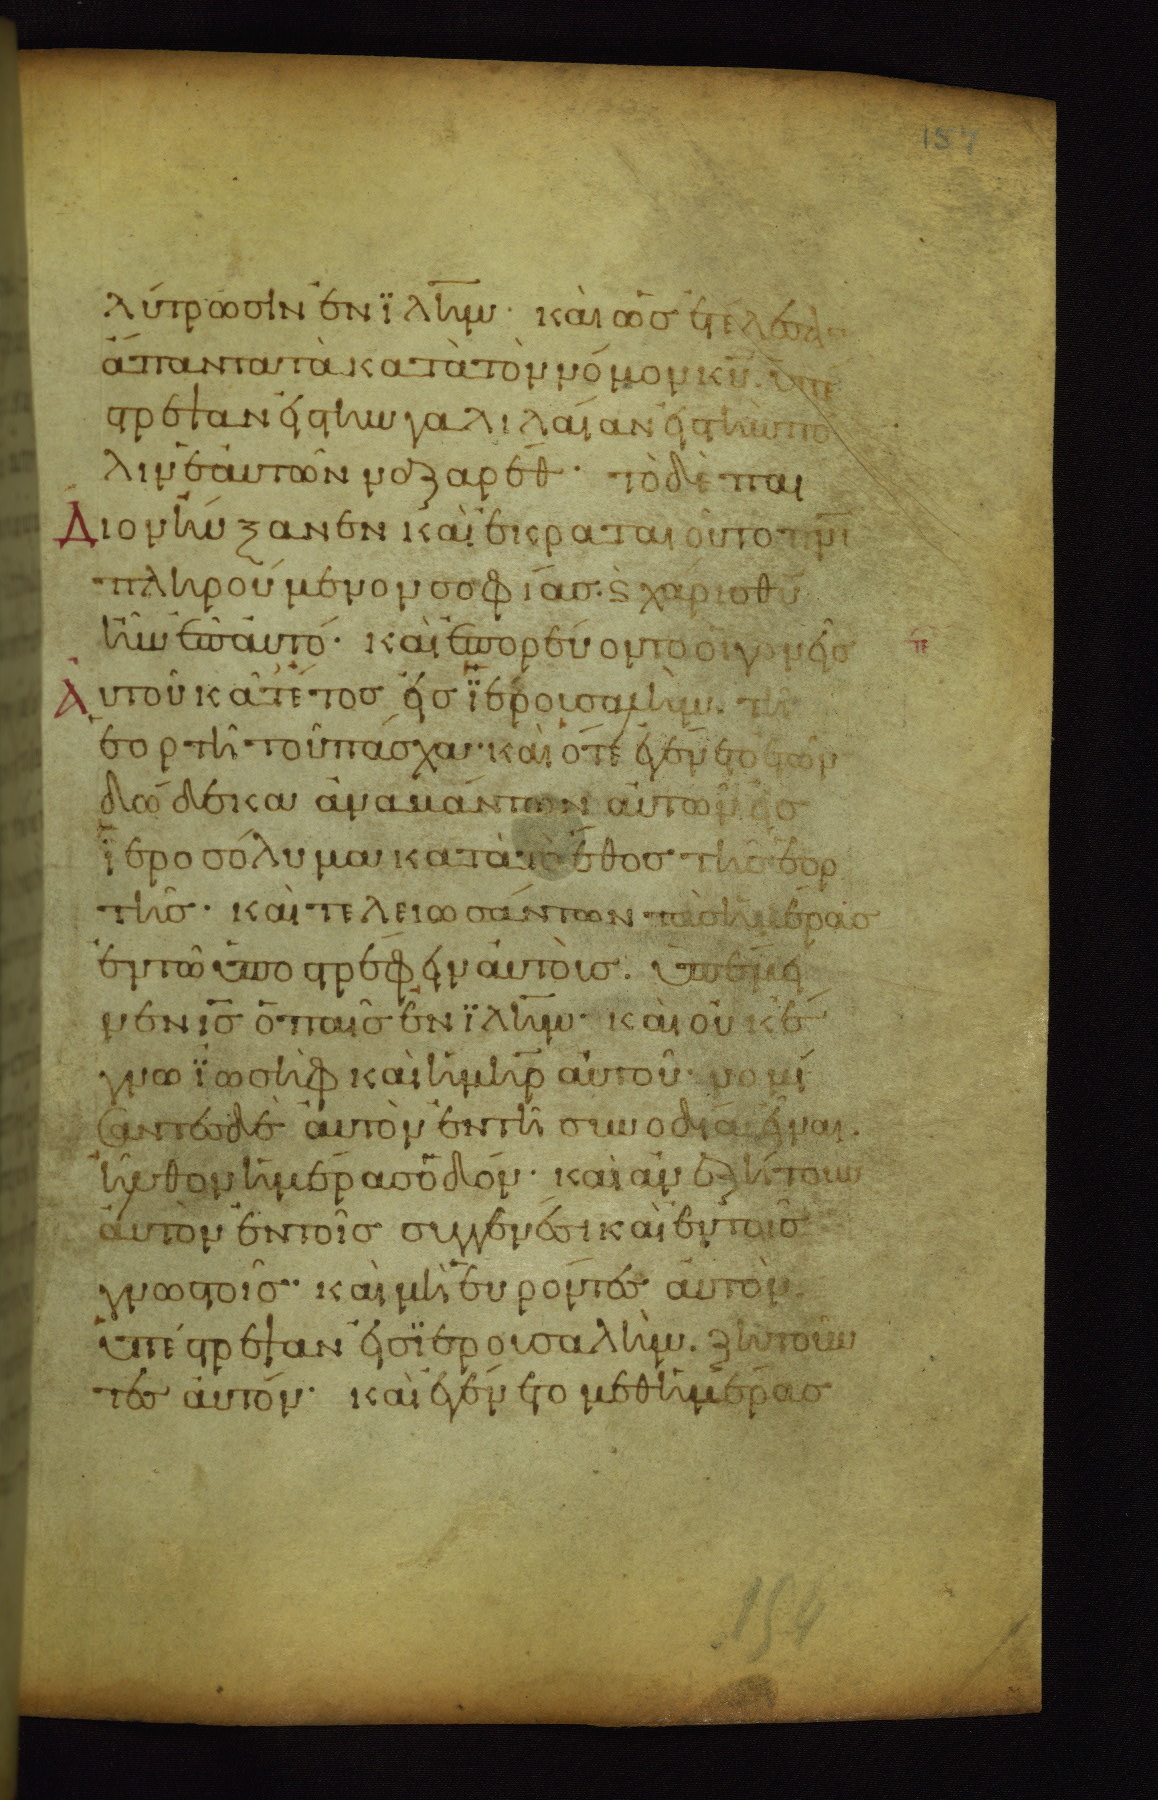 157
λύτρωσιν ἐν ϊλῆμ· καὶ ὡς ἐτέλεσαν
ἅπαντα τὰ κατὰ τὸν νόμον κυ. ὑπέ
στρεψαν εἰς τὴν γαλιλαίαν εἰς τὴν πό
λιν ἑαυτῶν ναζαρέθ· τὸ δὲ παι
Διον ηὔξανεν καὶ ἐκραταιοῦτο πνι
πληρούμενον σοφίας· ϗ χάρις θυ
ἦν ἐπ αυτό· καὶ ἐπορεύοντο οἱ γονεῖς
Αυτοῦ κατ έτος εἰς ϊερουσαλὴμ. τῆ
ἑορτῆ τοῦ πάσχα· καὶ ὅτε ἐγένετο ἐτῶν
δώδεκα ἀναβάντων αὐτῶν εἰς
ϊεροσόλυμα κατὰ τὸ ἔθος τῆς ἑορ
τῆς· καὶ τελειωσάντων τὰς ἡμέρας
ἐν τῶ ὑποστρέφειν αὐτοὺς. ὑπέμει
νεν ις ὁ παῖς ἐν ϊλῆμ· καὶ οὐκ ἔ
γνω ϊωσὴφ καὶ ἡ μηρ αὐτοῦ· νομί
σαντες δὲ αὐτὸν ἐν τῆ συνοδία εἶναι.
ἦλθον ἡμέρας ὁδόν· καὶ ἀνεζήτουν
αὐτὸν ἐν τοῖς συγγενέσι καὶ ἐν τοῖς
γνωστοῖς·· καὶ μὴ εὑρόντες αὐτὸν.
ὑπέστρεψαν εἰς ϊερουσαλὴμ. ζητοῦν
τες αὐτόν· καὶ ἐγένετο μεθ ἡμέρας
154